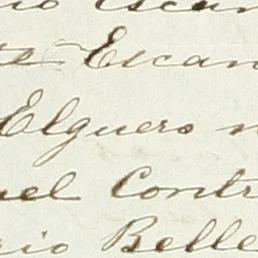 io Escan
te Escan
Elguero n
uel Contr
rio Belle